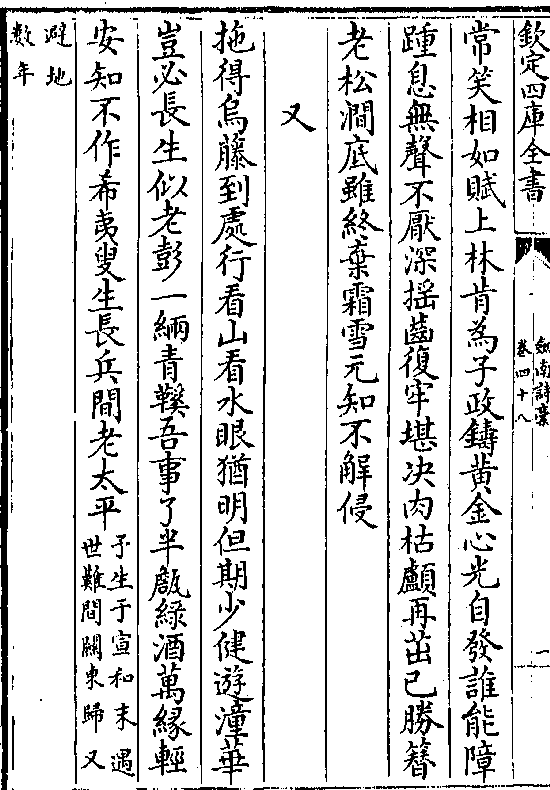 欽定四庫全書
劍南詩槀
卷四十八
一
常笑相如賦上林肯為子政鑄黄金心光自發誰能障
踵息無聲不厭深揺齒復牢堪决肉枯顱再茁已勝簪
老松澗底雖終棄霜雪元知不解侵
又
拖得烏藤到處行看山看水眼猶明但期少健遊潼華
豈必長生似老彭一緉青鞵吾事了半甒綠酒萬緣輕
安知不作希夷叟生長兵間老太平
予生于宣和末遇
世難間關東歸又
避地
数年